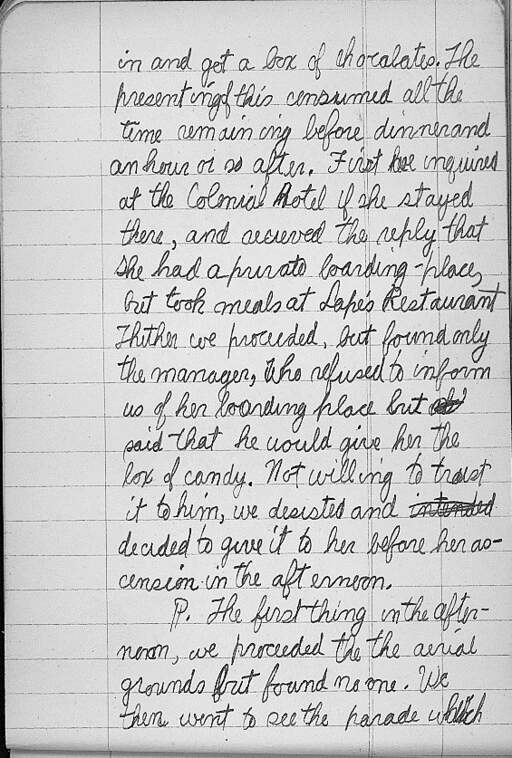 in and get a box of chocalates. The
presenting of this consumed all the
time remaining before dinner and
an hour or so after. First we inquired
at the Colonial Hotel if she stayed
there, and recieved the reply that
she had a private boarding-place,
but took meals at Lape's Restaurant
Thither we proceeded, but found only
the manager, who refused to inform
us of her boarding place but
said that he would give her the
box of candy. Not willing to trust
it to him, we desisted and intended
decided to give it to her before her as-
cension in the afternoon.
P. The first thing in the after-
noon, we proceeded the the aerial
grounds but found no one. We
then went to see the parade which